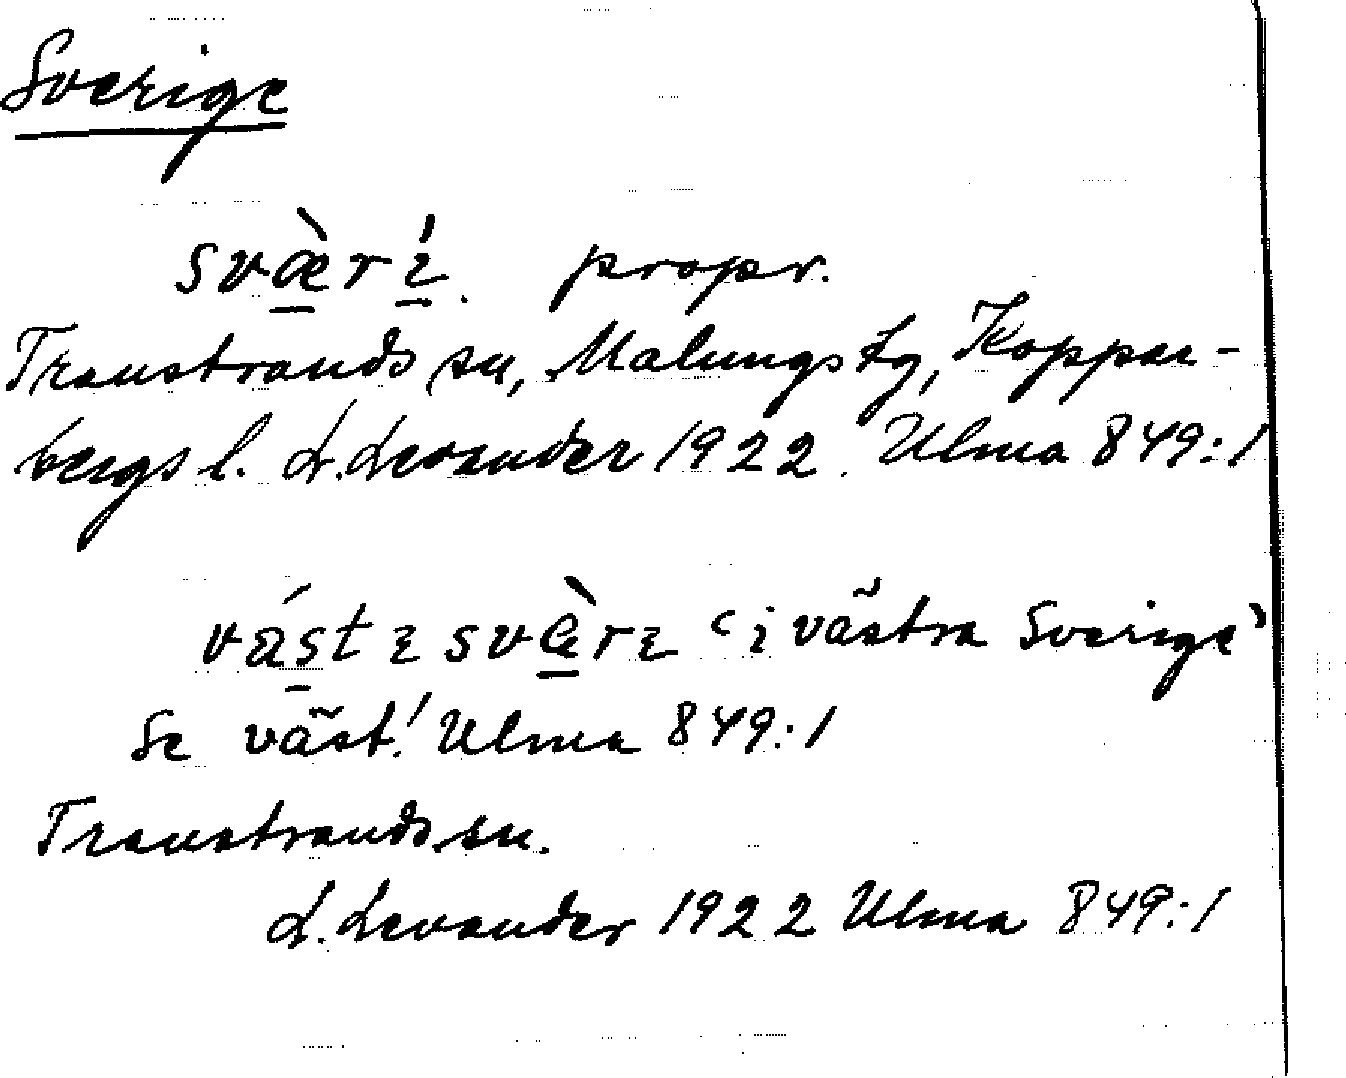 Sverige
svæ̀rí. propr.
Transtrands sn, Malungs tg, Koppar-
bergs l. L. Levander 1922. Ulma 849:1
vástɩ svæ̀rɩ ‘i västra Sverige’
Se väst! Ulma 849:1
Transtrands sn.
L. Levander 1922 Ulma 849:1